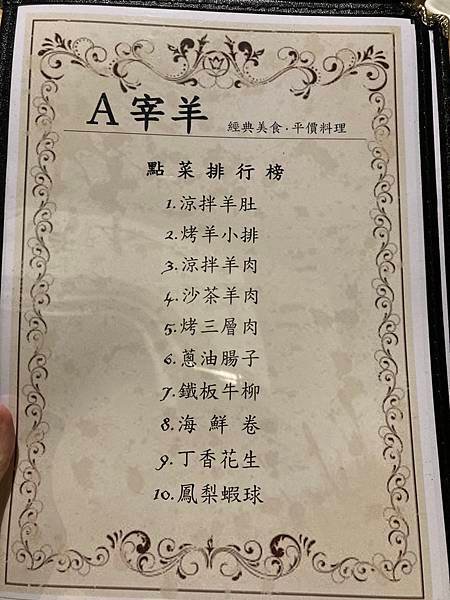 A宰羊 經典美食.平價料理
點菜排行榜
1.涼拌羊肚
2.烤羊小排
3.涼拌羊肉
4.沙茶羊肉
5.烤三層肉
6.蔥油腸子
7.鐵板牛柳
8.海鮮卷
9.丁香花生
10.鳳梨蝦球